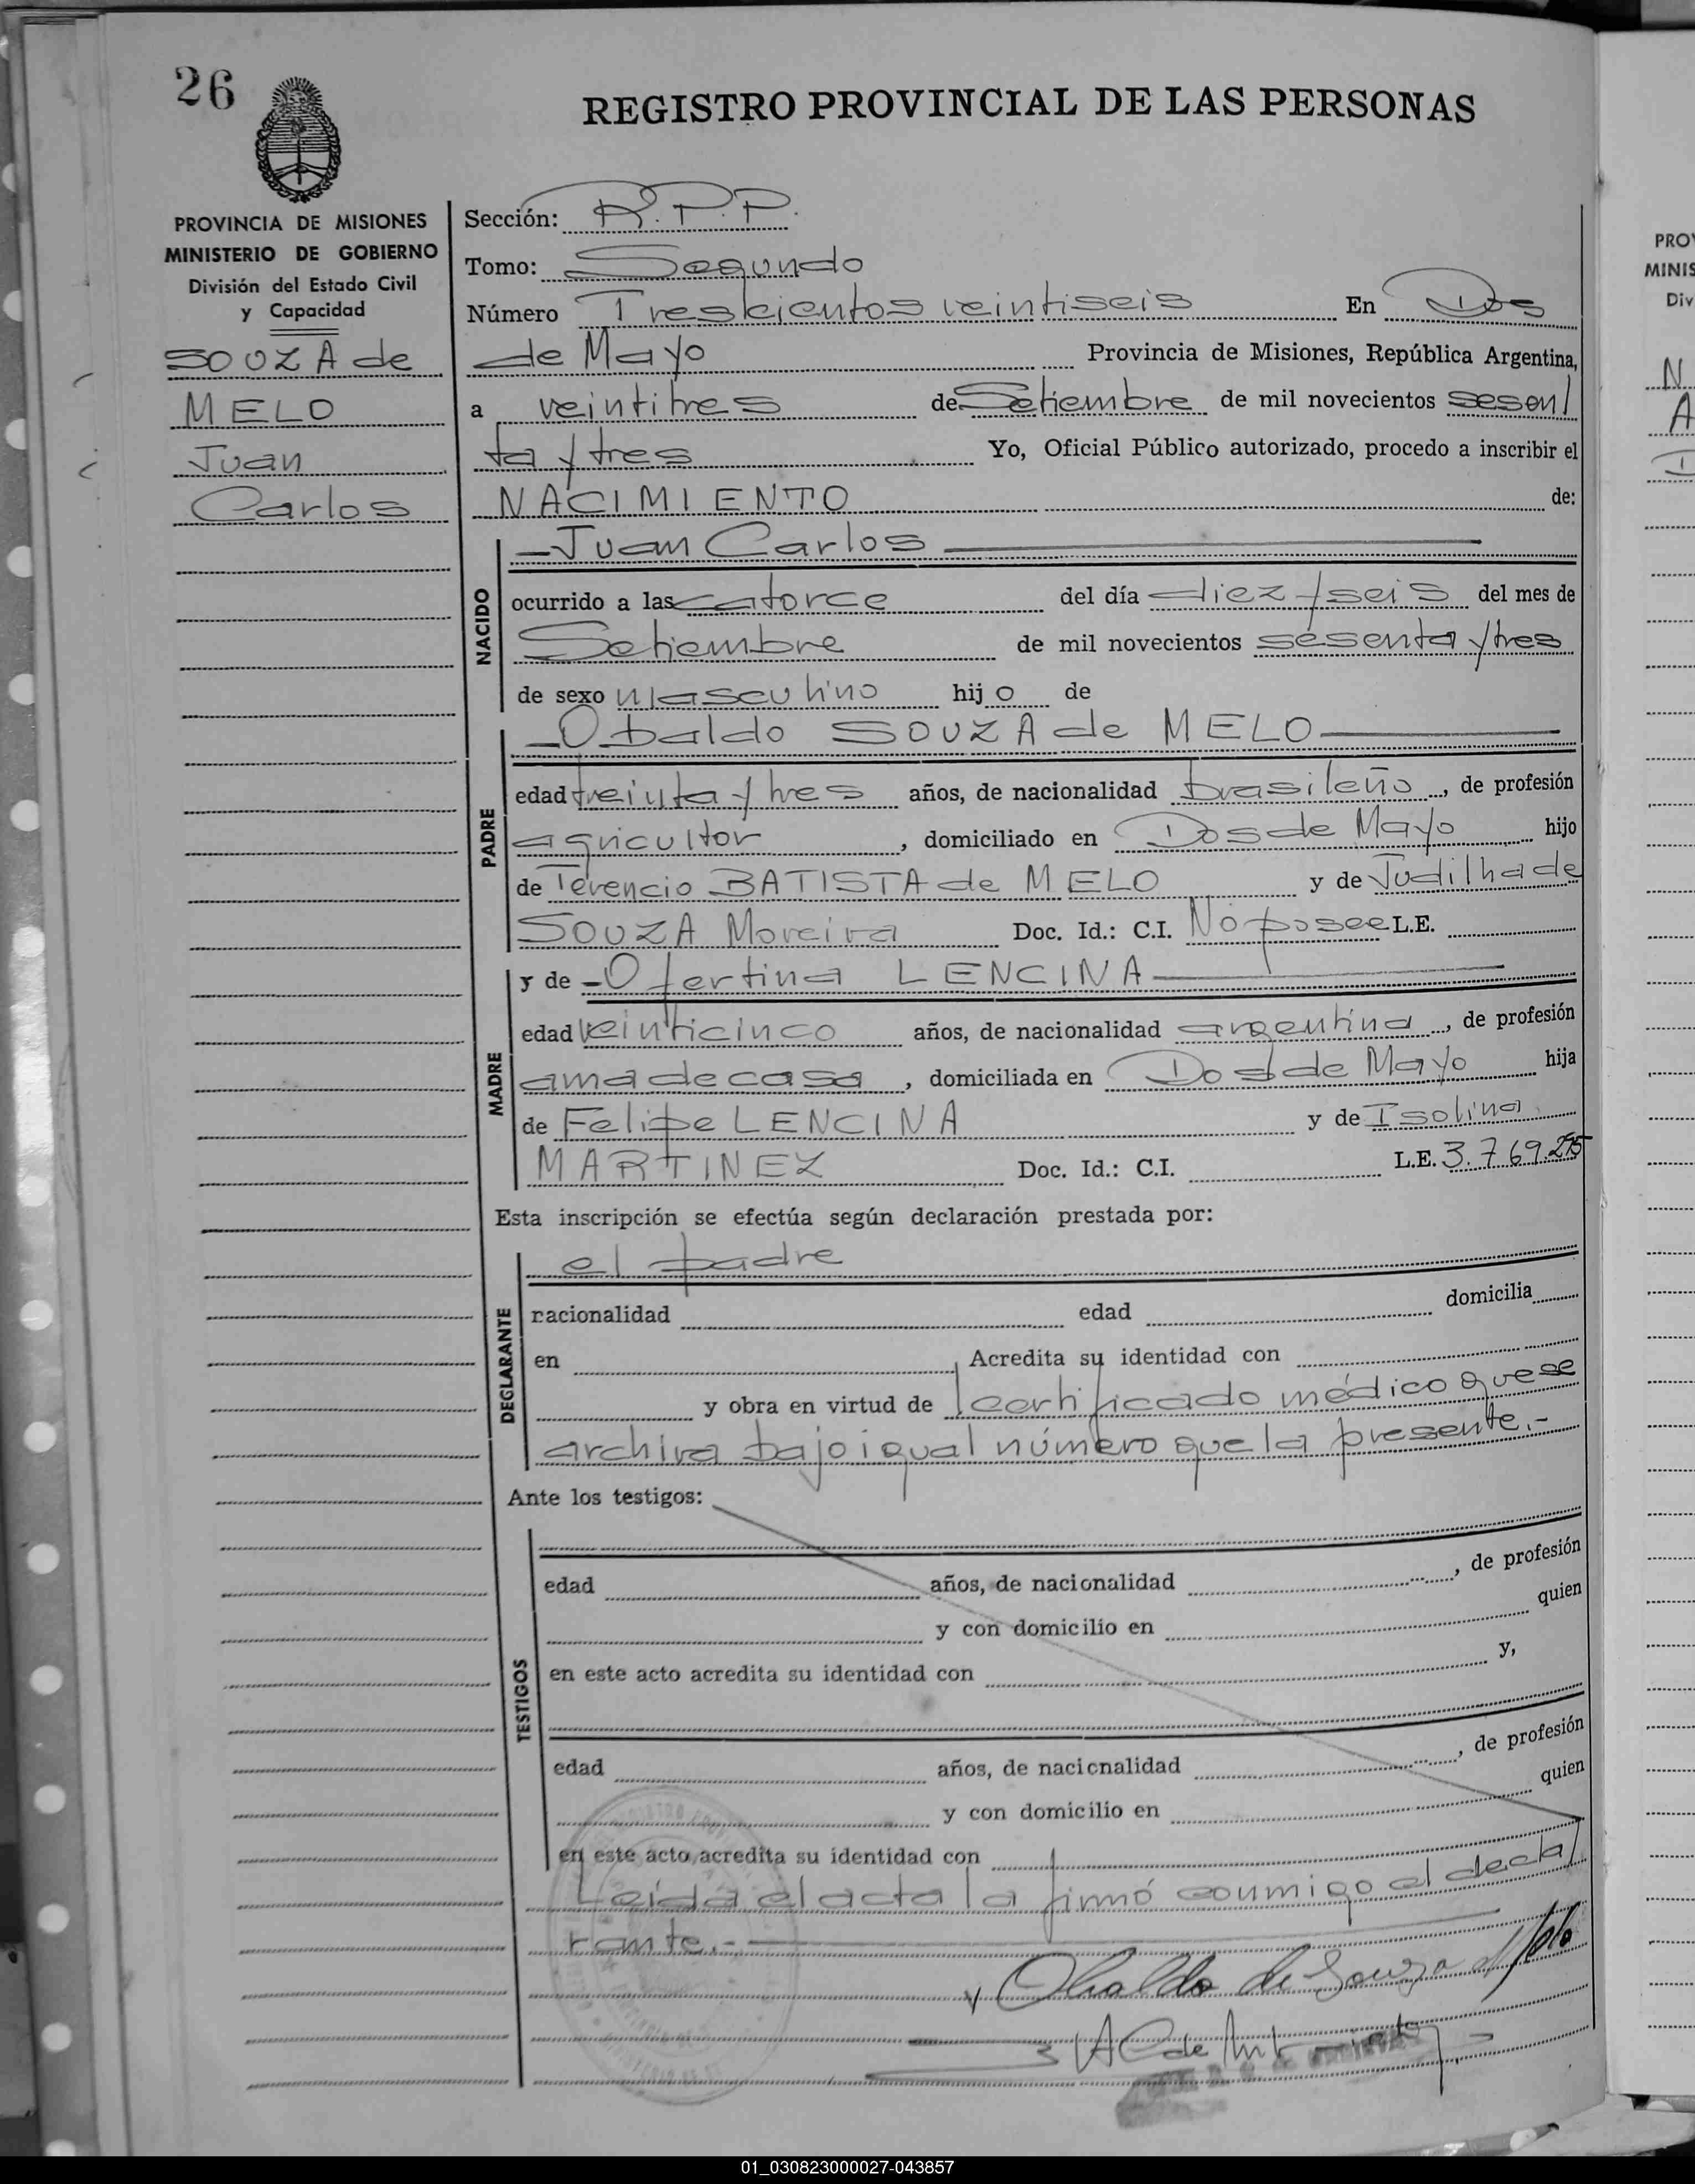 26
REGISTRO PROVINCIAL DE LAS PERSONAS
PROVINCIA DE MISIONES
MINISTERIO DE GOBIERNO
División del Estado Civil
y Capacidad
SOUZA de
MELO
Juan
Carlos
Sección: R.P.P.
Tomo: Segundo
Número Trescientos veintiseis En Dos
de Mayo Provincia de Misiones, República Argentina,
a veintitres de Setiembre de mil novecientos sesen/
ta y tres Yo, Oficial Público autorizado, procedo a inscribir el
NACIMIENTO de:
NACIDO
—Juan Carlos—
ocurrido a las catorce del día diez y seis del mes de
Setiembre de mil novecientos sesenta y tres
de sexo masculino hijo de
PADRE
—Obaldo SOUZA de MELO—
edad treinta y tres años, de nacionalidad brasileño, de profesión
agricultor, domiciliado en Dos de Mayo hijo
de Terencio BATISTA de MELO y de Judilha de
SOUZA Moreira Doc. Id.: C.I. No posee L.E.
MADRE
y de —Ofertina LENCINA—
edad veinticinco años, de nacionalidad argentina, de profesión
ama de casa, domiciliada en Dos de Mayo hija
de Felipe LENCINA y de Isolina
MARTINEZ Doc. Id.: C.I. L.E. 3.769.
Esta inscripción se efectúa según declaración prestada por:
DECLARANTE
el padre
nacionalidad edad domicilia
en Acredita su identidad con
y obra en virtud de certificado médico que se
archiva bajo igual número que la presente.-
Ante los testigos:
TESTIGOS
edad años, de nacionalidad, de profesión
y con domicilio en quien
en este acto acredita su identidad con y,
edad años, de nacionalidad, de profesión
y con domicilio en quien
en este acto acredita su identidad con
Leida el acta la firmó conmigo el decla/
rante.-
Obaldo de Souza Melo
PRO
MINIS
Div
N
A
01_030823000027-043857